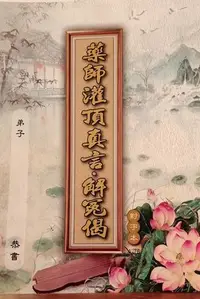 藥師灌頂真言·解冤偈
弟子
恭書